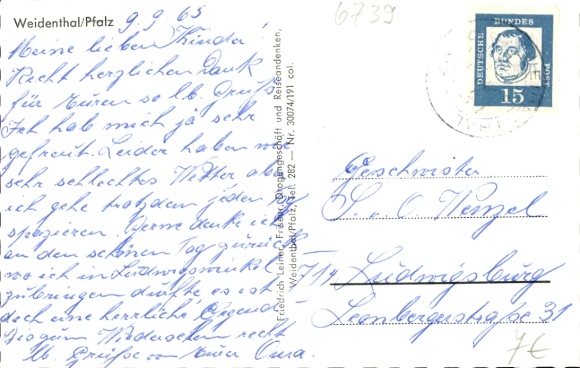 Weidenthal/Pfalz
9.9.63
Meine lieben Kinder!
Recht herzlichen Dank
für Euren so lb. Gruß.
Ich hab mich ja sehr
gefreut. Leider haben wir
sehr schlechtes Wetter aber
ich gehe trotzdem jeden Tag
spazieren. Gerne denke ich
an den schönen Tag zurück
wo ich in Ludwigswinkel
zubringen durfte, es ist
doch eine herrliche Gegend.
Bis zum Wiedersehen recht
lb. Grüße von Eurer Oma.
Friedrich Leiner, Friseur, Drogengeschäft und Reiseandenken,
Weidenthal/Pfalz, Tel. 282 — Nr. 30074/191 col.
6739
DEUTSCHE BUNDESPOST
15
Geschwister
S. u. O. Wenzel
714 Ludwigsburg
Leonbergerstraße 31
7€